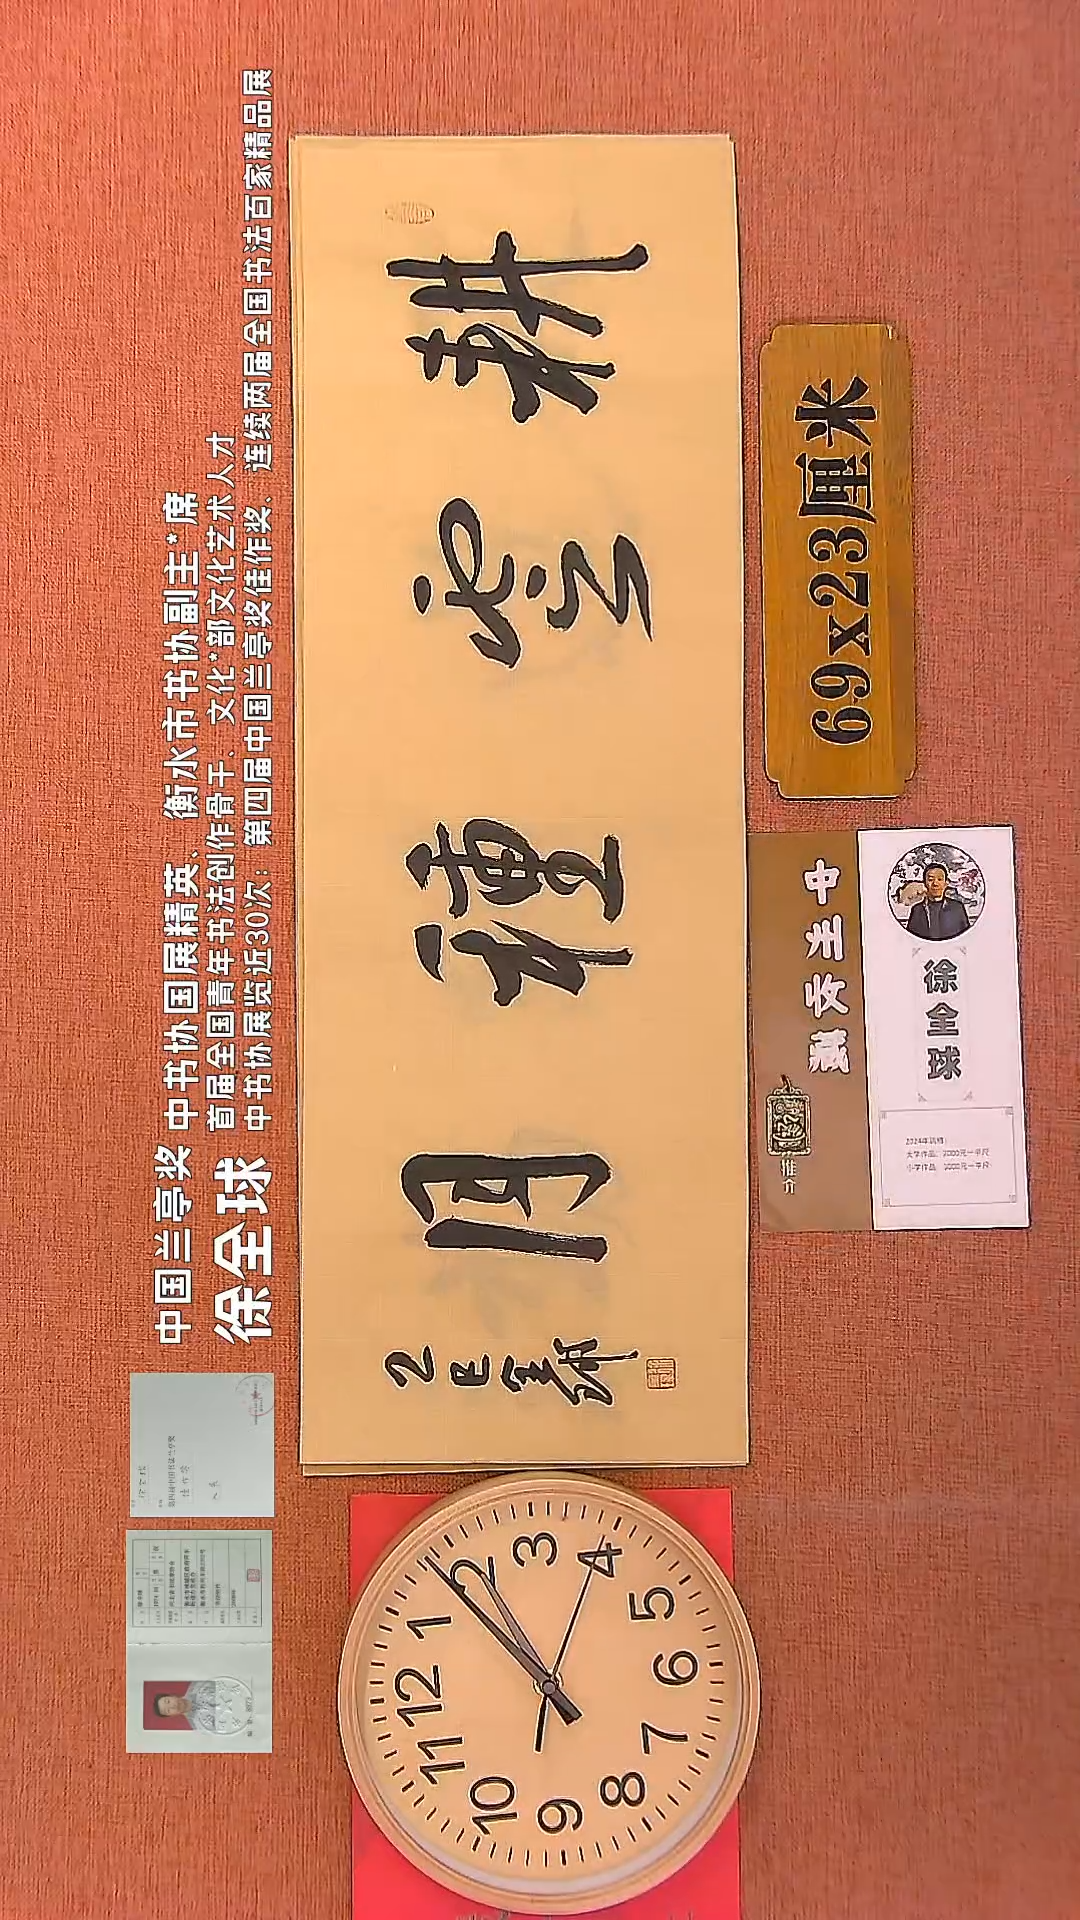 中国兰亭奖 中书协国展精英、衡水市书协副主*席
徐全球
首届全国青年书法创作骨干、文化*部文化艺术人才
中书协展览近30次：第四届中国兰亭奖佳作奖、连续两届全国书法百家精品展
耕云種月
乙巳全球
69x23厘米
中
圭
文
藏
推介
徐全球
2024年润格:
大字作品: 2000元一平尺
小字作品: 3000元一平尺
12
1
2
3
4
5
6
7
8
9
10
11